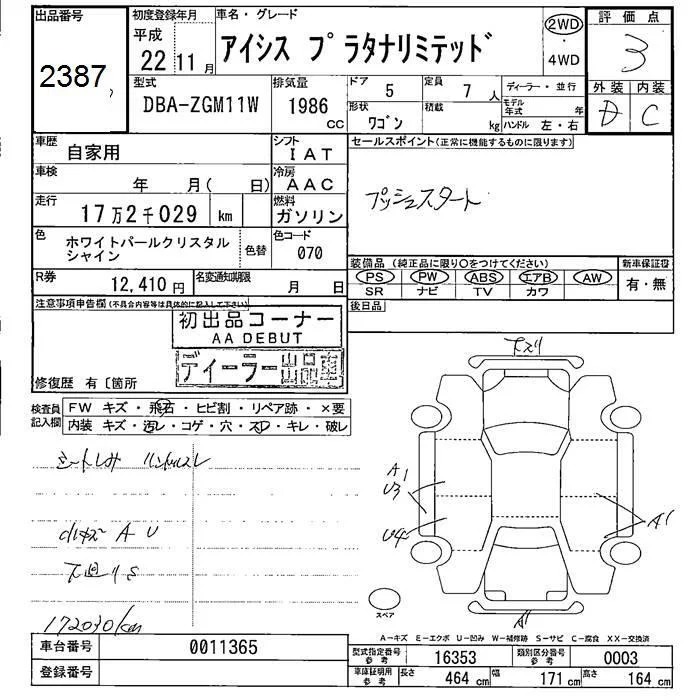 出品番号
2387
初度登録年月
平成
22 11月
車名・グレード
アイシス プラタナリミテッド
2WD
・
4WD
評価点
3
型式
DBA-ZGM11W
排気量
1986
cc
ドア 5
定員 7人
形状 ワゴン
積載 kg
ディーラー・並行
モデル年式 年
ハンドル 左・右
外装 内装
D C
車歴 自家用
シフト IAT
セールスポイント(正常に機能するものに限ります)
プッシュスタート
車検 年 月( 日)
冷房 AAC
走行 17万2千029 km
燃料 ガソリン
色 ホワイトパールクリスタル
シャイン
色替
色コード
070
装備品(純正品に限り○をつけてください)
新車保証書
PS PW ABS エアB AW
SR ナビ TV カワ
有・無
R券 12,410円
名変通知期限 月 日
後日品
注意事項申告欄(不具合内容等は具体的に記入して下さい)
初出品コーナー
AA DEBUT
ディーラー出品店
修復歴 有〔箇所
検査員
記入欄
FW キズ・飛石・ヒビ割・リペア跡・×要
内装 キズ・汚レ・コゲ・穴・スレ・キレ・破レ
シートしみ ハンドルスレ
A U
下廻りS
172030km
下ズリ
A1
U3
U4
A1
A1
スペア
A-キズ E-エクボ U-凹み W-補修跡 S-サビ C-腐食 XX-交換済
車台番号 0011365
登録番号
型式指定番号
参考
16353
類別区分番号
参考
0003
車庫証明用
参考
長さ 464cm
幅 171cm
高さ 164cm